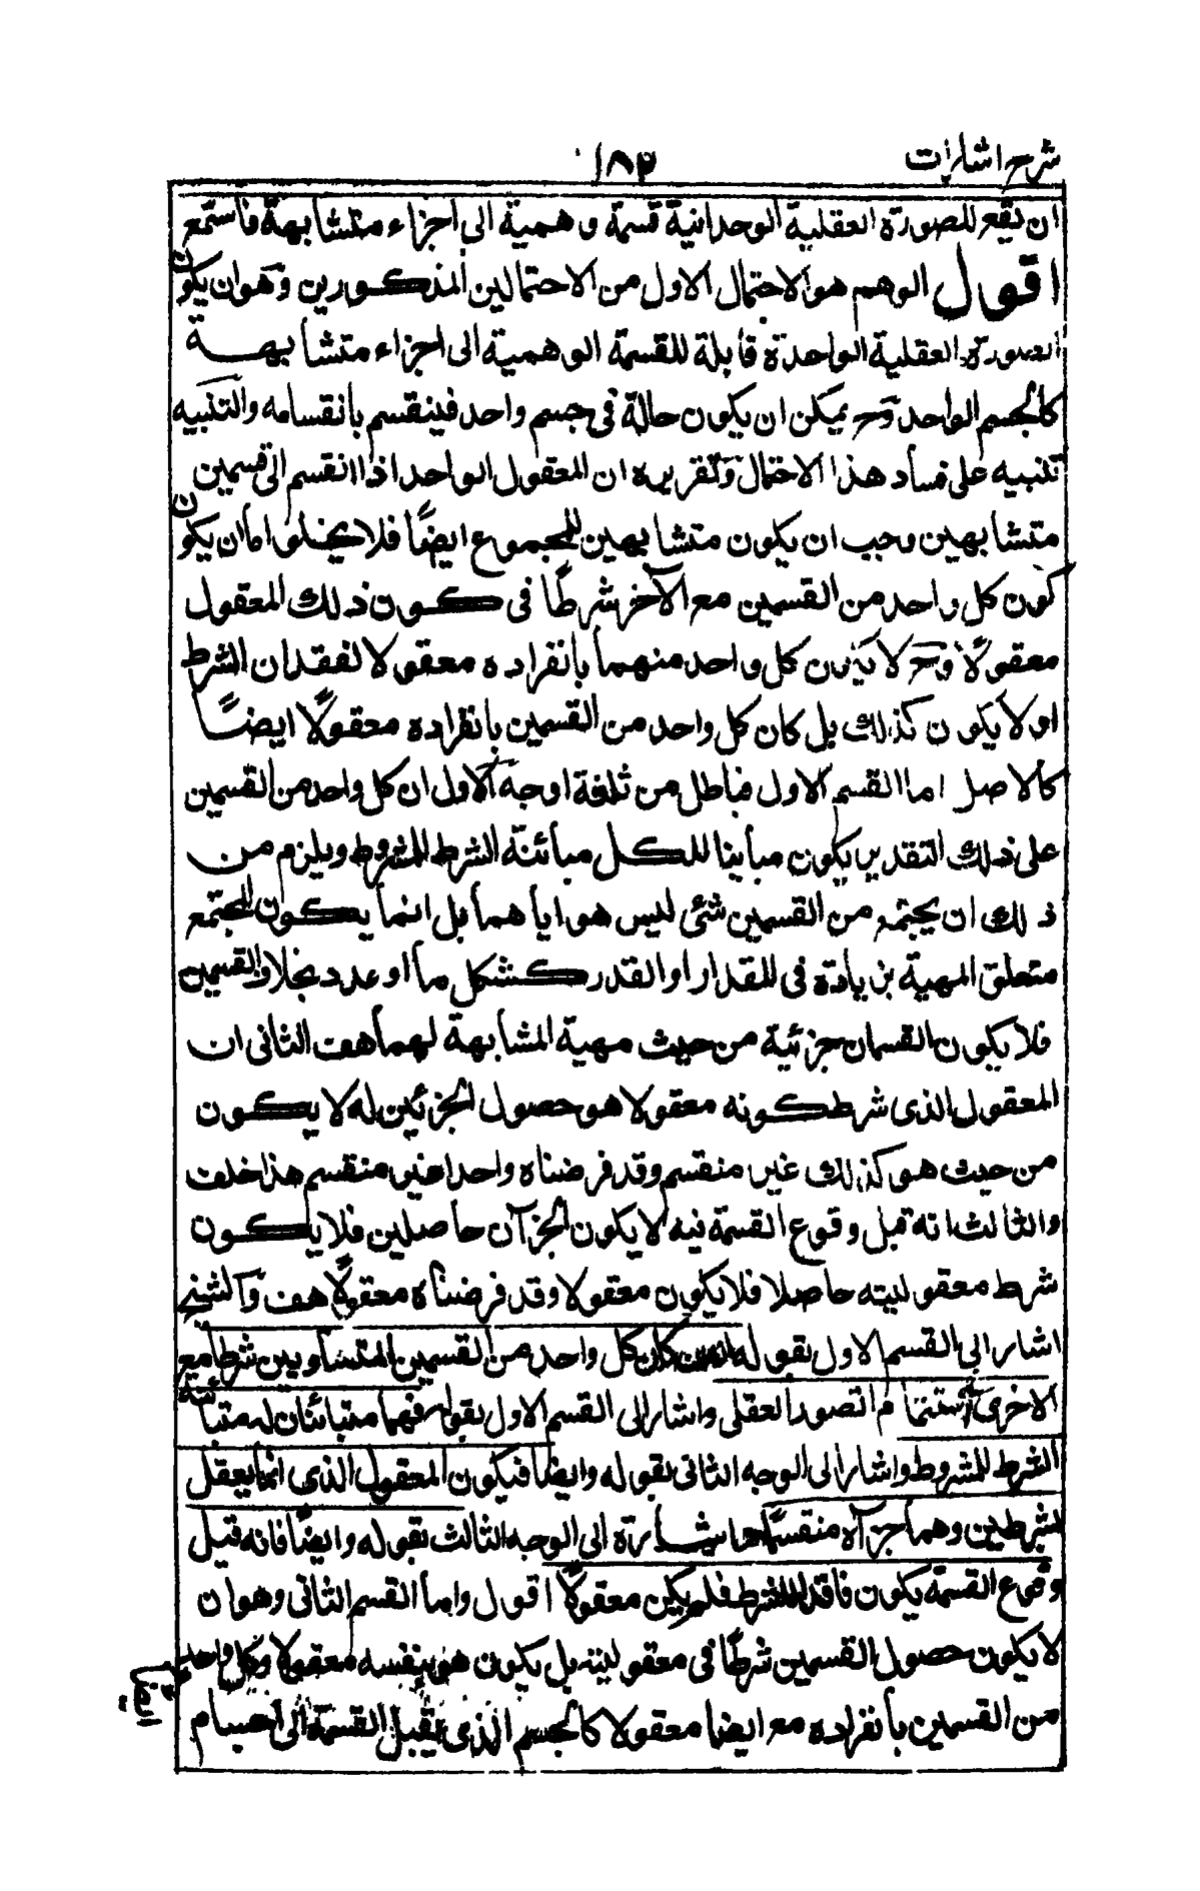 شرح اشارات ١٨٣
ان تقع للصورة العقلية الوحدانية قسمة وهمية الى اجزاء متشابهة فاستمع
اقول الوهم هو الاحتمال الاول من الاحتمالين المذكورين وهو ان يكون
الصورة العقلية الواحدة قابلة للقسمة الوهمية الى اجزاء متشابهة
كالجسم الواحد وح يمكن ان يكون حالة فى جسم واحد فينقسم بانقسامه والتنبيه
تنبيه على فساد هذا الاحتمال وتقريره ان المعقول الواحد اذا انقسم الى قسمين
متشابهين وجب ان يكون متشابهين للمجموع ايضًا فلا يخلو اما ان يكون
كون كل واحد من القسمين مع الآخر شرطًا فى كون ذلك المعقول
معقولًا وح لا يكون كل واحد منهما بانفراده معقولا لفقدان الشرط
او لا يكون كذلك بل كان كل واحد من القسمين بانفراده معقولًا ايضًا
كالاصل اما القسم الاول فباطل من ثلثة اوجه الاول ان كل واحد من القسمين
على ذلك التقدير يكون مباينا للكل مبائنة الشرط للمشروط ويلزم من
ذلك ان يجتمع من القسمين شئ ليس هو اياهما بل انما يكون المجتمع
متعلق المهية بزيادة فى المقدار او القدر كشكل ما او عدد بخلاف القسمين
فلا يكون القسمان جزئية من حيث مهية المشابهة لهما هف الثانى ان
المعقول الذى شرط كونه معقولا هو حصول الجزئين له لا يكون
من حيث هو كذلك غير منقسم وقد فرضناه واحدا غير منقسم هذا خلف
والثالث انه قبل وقوع القسمة فيه لا يكون الجزآن حاصلين فلا يكون
شرط معقوليته حاصلا فلا يكون معقولا وقد فرضناه معقولًا هف والشيخ
اشار الى القسم الاول بقوله ان كان كل واحد من القسمين المتشاويين شرطا مع
الاخر فى استتمام التصور العقلى واشار الى القسم الاول بقوله فهما متبائنان له مبائنة
الشرط للمشروط واشار الى الوجه الثانى بقوله وايضا فيكون المعقول الذى انما يعقل
بشرطين وهما جزآه منقسمًا واشارة الى الوجه الثالث بقوله وايضًا فانه قبل
وقوع القسمة يكون فاقد للشرط فلم يكن معقولًا اقول واما القسم الثانى وهو ان
لا يكون حصول القسمين شرطًا فى معقوليته بل يكون هو بنفسه معقولا وكل واحد
من القسمين بانفراده مع ايضا معقولا كالجسم الذى يقبل القسمة الى اجسام